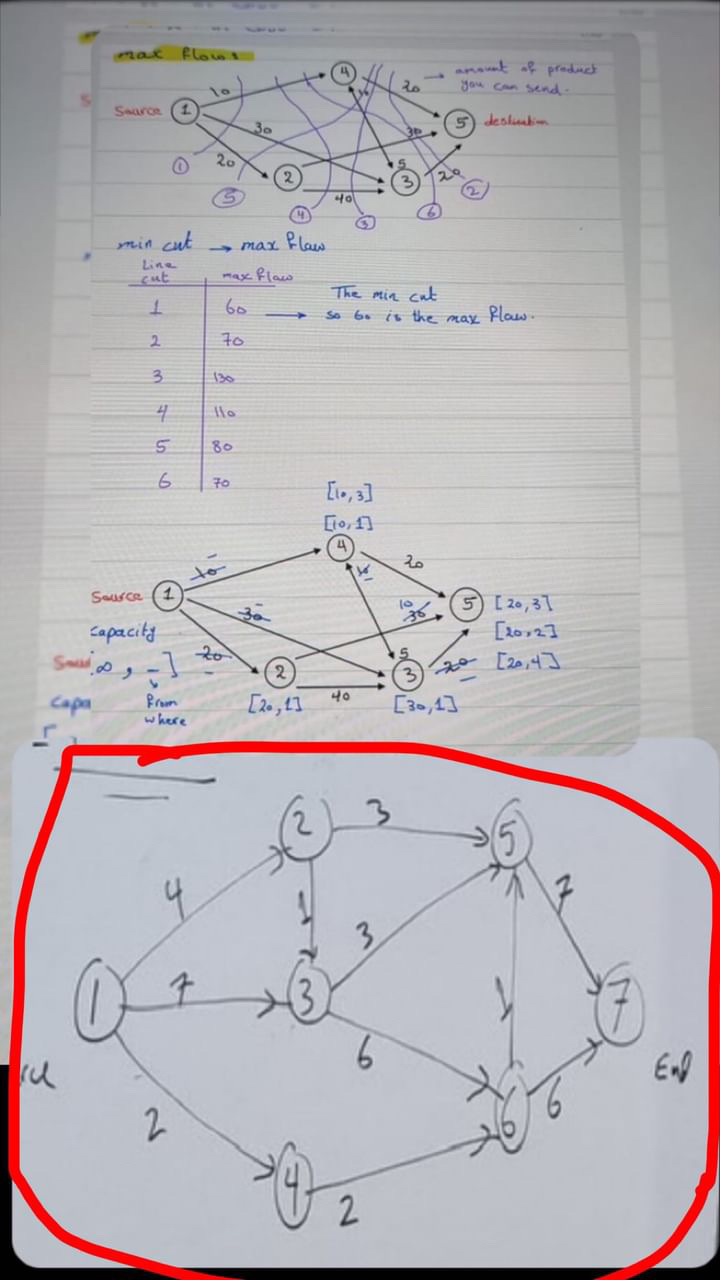 max flow:
amount of product
you can send.
Source 1 10 4 20 5 destination
30 30
20 2 40 3 5 20
1 5 4 3 6 2
min cut → max flaw
Line
cut max flaw
1 60 → The min cut
so 60 is the max flaw.
2 70
3 130
4 110
5 80
6 70
[10,3]
[10,1]
4 20
Source 1 10 10
30 10 30 5 [20,3]
capacity [20,2]
∞, -] 20 2 40 3 5 20 [20,4]
from
where
[20,1] [30,1]
2 3 5
4 1 3 7
1 7 3 1 7
End
6 6 6
2 4 2